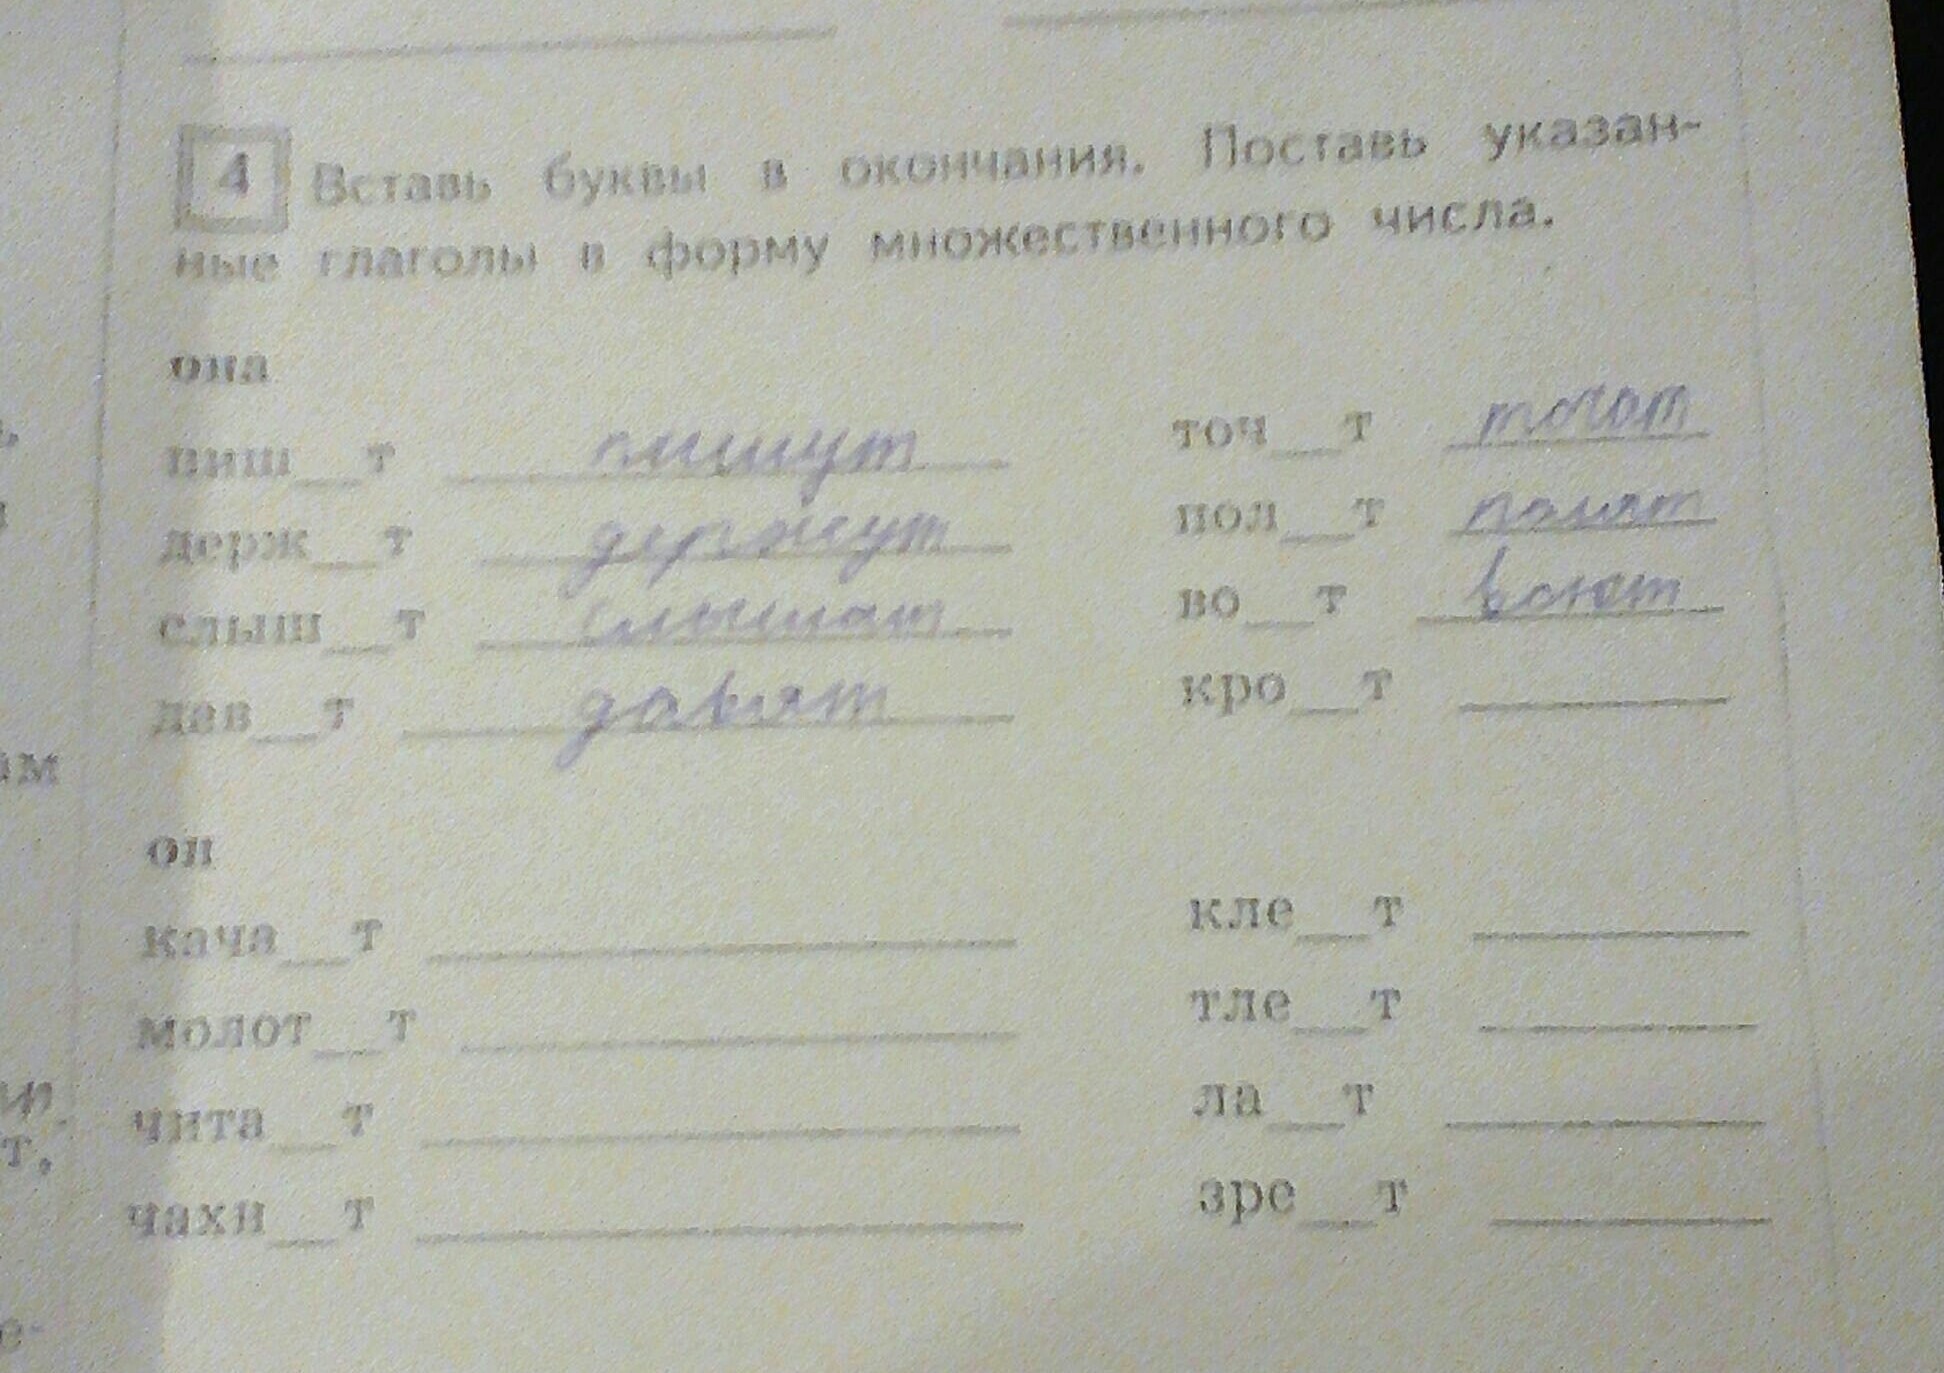 4 Вставь буквы в окончания. Поставь указан-
ные глаголы в форму множественного числа.
она
пиш__т пишут точ__т точат
держ__т держут пол__т полят
слыш__т слышат во__т воют
дав__т давят кро__т
он
кача__т кле__т
молот__т тле__т
чита__т ла__т
чахн__т зре__т
ом
т.
е-